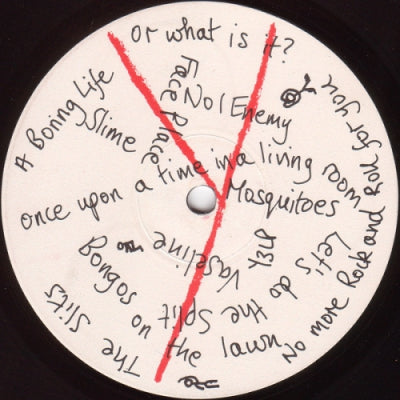 Or what is it?
A Boring Life
Slime
Face Place
No 1 Enemy
once upon a time in a living room
Mosquitoes
Y3LP
Vaseline
Let's do the Split
Bongos on the lawn
No more Rock and Roll for you
The Slits